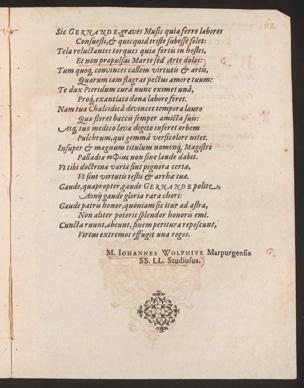 Sic GERNANDE, graves Musis quia ferre labores
Consuesti, & quicquid triste subesse soles:
Tela reluctantes torques quia fortis in hostes,
Et non propulsas Marte sed Arte dolos:
Tum quoq, convinces callem virtutis & artis,
Quarum jam flagrat pectus amore tuum:
Te dux Pieridum curâ nunc eximet unâ,
Proq, exantlato dona labore feret.
Nam tua Chalcidicâ devincet tempora lauro
Quæ floret baccis semper amicta suis:
Atq, tuo medico lævæ digito inferet orbem
Pulchrum, qui gemmâ versicolore nitet.
Insuper & magnum titulum nomenq, Magistri
Palladiæ non sine laude dabit.
Ut tibi doctrinæ variæ sint pignora certa,
Ut sint virtutis testis & arrha tuæ.
Gaude, quapropter, gaude GERNANDE polite,
Aonij gaude gloria rara chori:
Gaude patrii honor, quoniam sic itur ad astra,
Non aliter poterit splendor honoris emi.
Cuncta ruunt, abeunt, finem peritura reposcunt,
Virtus extremos effugit una rogos.
M. IOHANNES WOLPHIUS Marpurgensis
SS. LL. Studiosus.